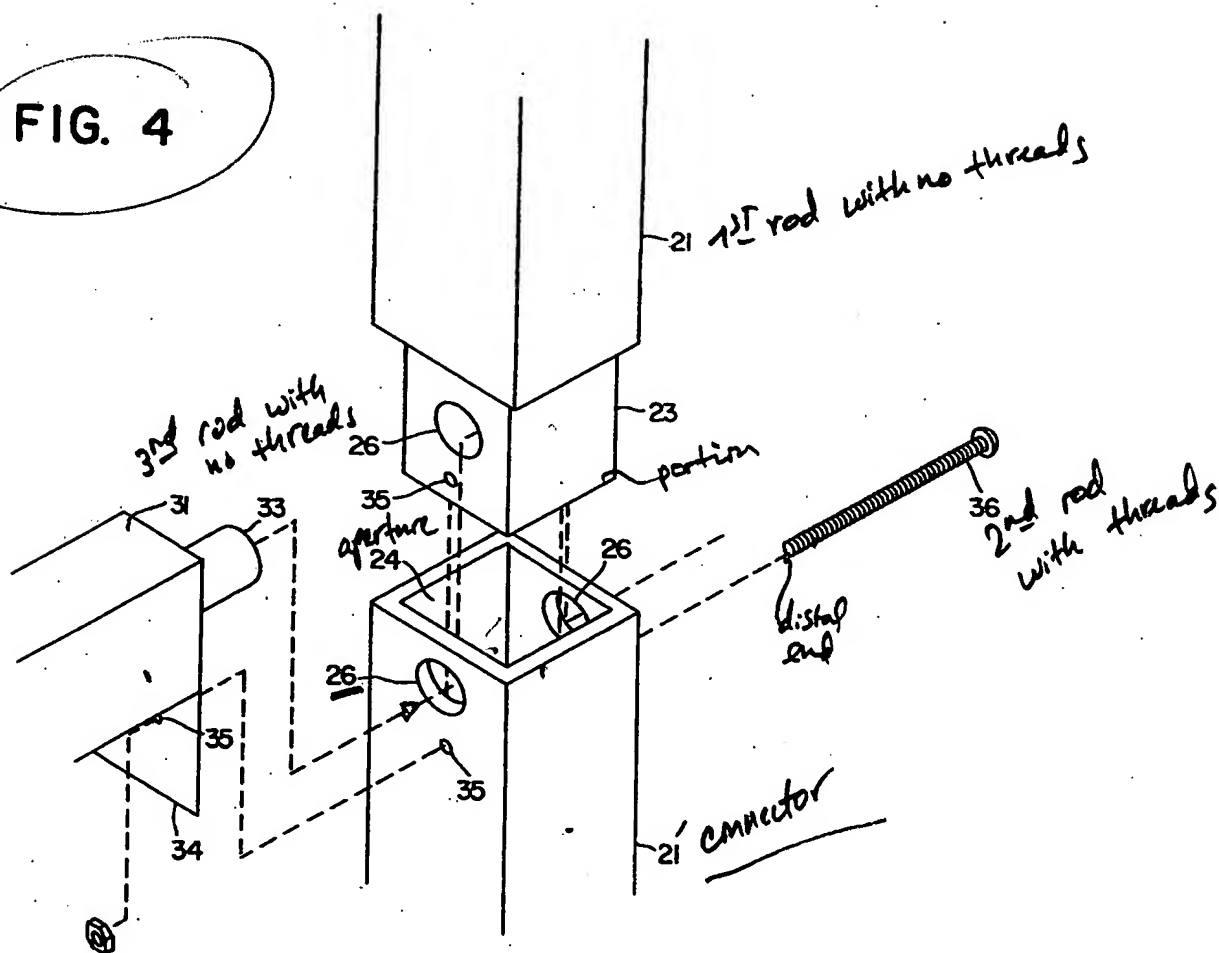 FIG. 4
21 1ST rod with no threads
23
3rd rod with
no threads
26
35
portion
31
33
aperture
24
26
36
2nd rod
with threads
distal
end
26
35
35
34
21' connector